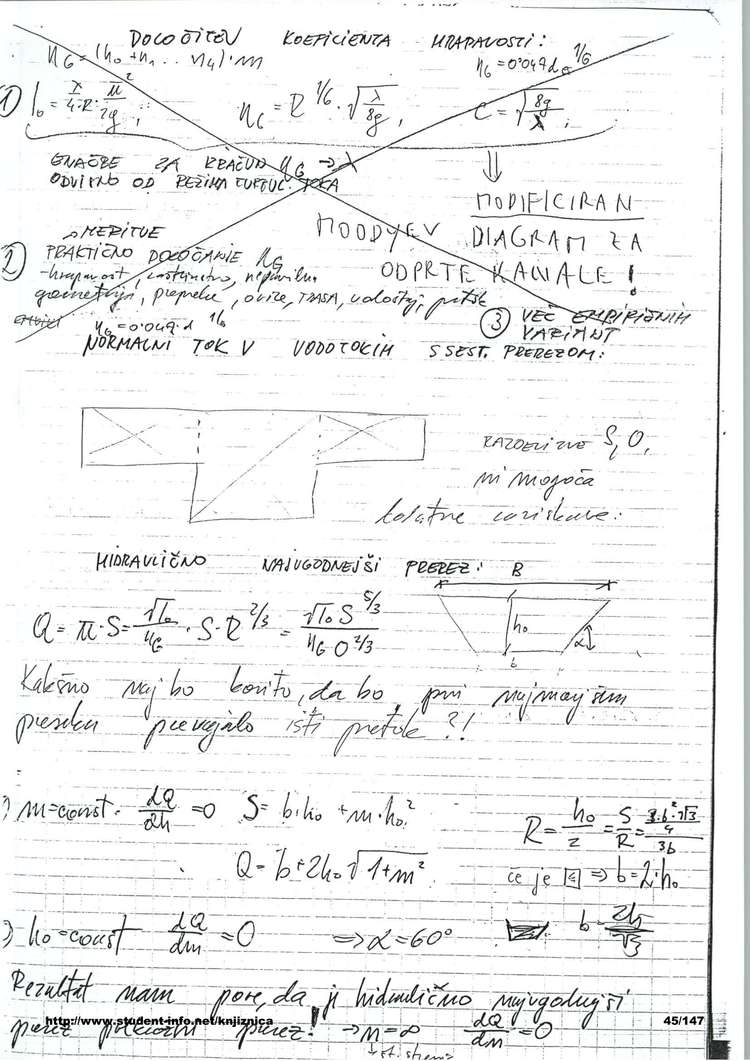 DOLOČITEV KOEFICIENTA HRAPAVOSTI:
nG = (n0 + n1 ... n4)·m
nG = 0'047 d^1/6
1) I0 = λ/4·R · u²/2g ; nG = R^1/6 · √(λ/8g), C = √(8g/λ) ;
ENAČBE ZA RAČUN nG → λ
ODVISNO OD REŽIMA TURBUL. TOKA
⇓
MODIFICIRAN
MOODYEV DIAGRAM ZA
ODPRTE KANALE!
MERITVE
2) PRAKTIČNO DOLOČANJE nG
- hrapavost, rastlinstvo,
geometrija, prepreke, ovire, TRASA, vodostaj,
nG = 0'049·d^1/6
3) VEČ EMPIRIČNIH
VARIANT
NORMALNI TOK V VODOTOKIH S SEST. PREREZOM:
RAZDELITVE S, O,
ni mogoča
HIDRAVLIČNO NAJUGODNEJŠI PREREZ:
B
h0
α
b
Q = u·S = √I0/nG · S·R^2/3 = √I0 S^5/3 / nG O^2/3
Kakšno naj bo korito, da bo pri najmanjšem
preseku prevajalo isti pretok?!
) m=const. dQ/dh = 0 S = b·h0 + m·h0²
R = h0/2 = S/R = 3·b²·√3/4 / 3b
O = b+2h0√1+m²
če je ⇒ b=2·h0
) h0=const dQ/dm = 0 ⇒ α=60° b = 2h/√3
Rezultat nam pove, da je hidravlično najugodnejši
prerez prerez! → m=∞ dQ/dm = 0
http://www.student-info.net/knjiznica
45/147